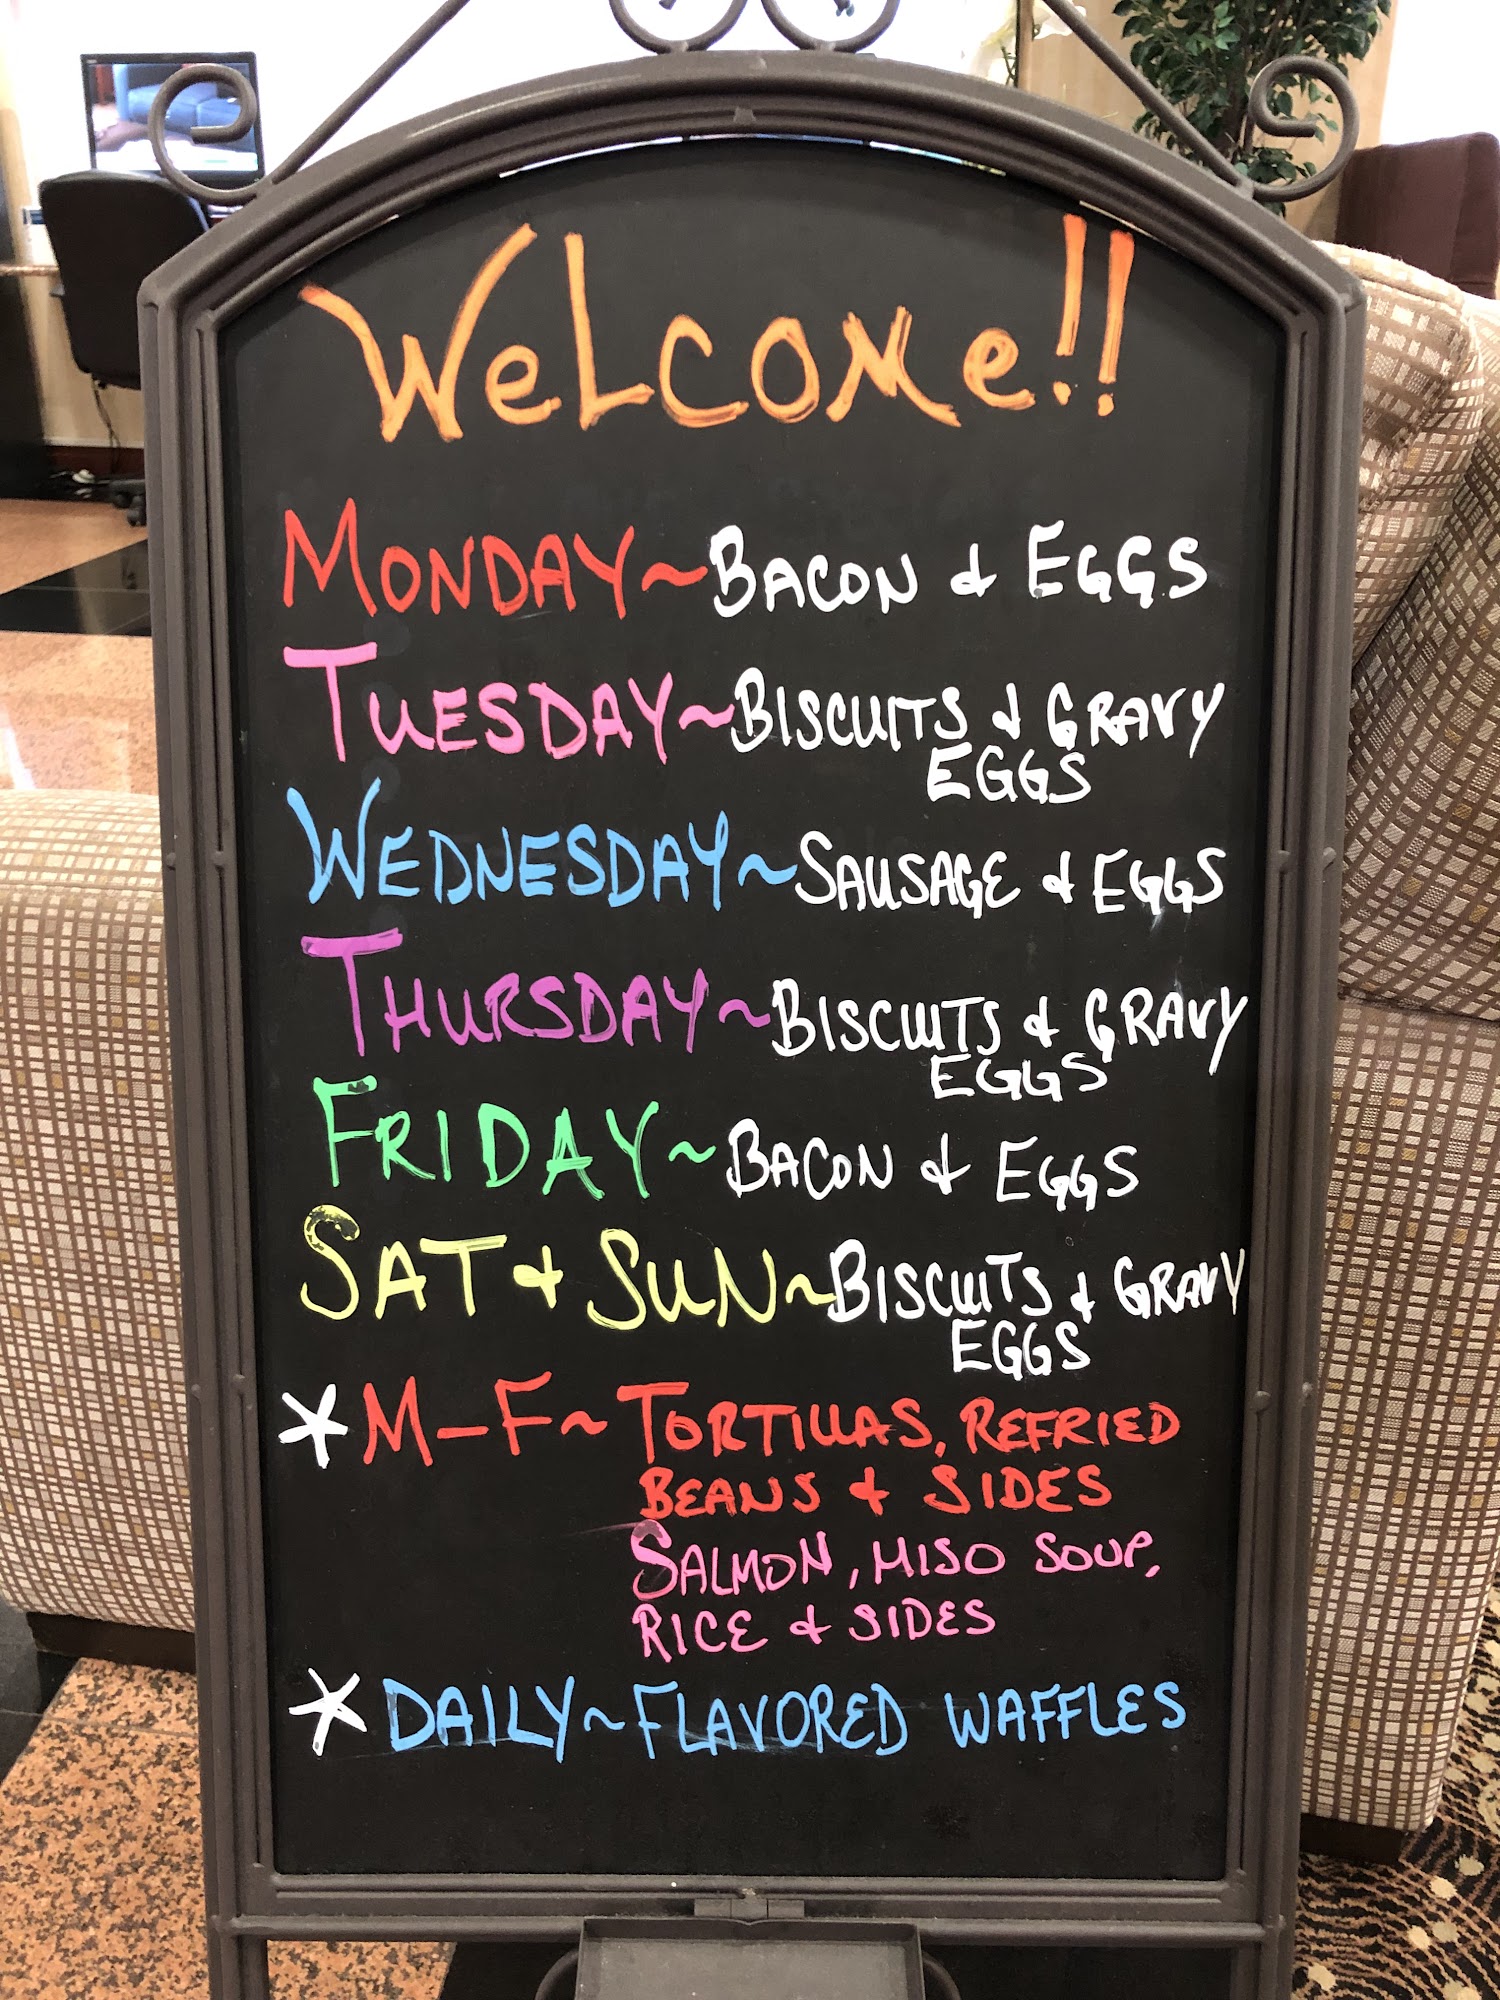 WeLCOMe!!
MONDAY~BACON & EGGS
TUESDAY~BISCUITS & GRAVY
EGGS
WEDNESDAY~SAUSAGE & EGGS
THURSDAY~BISCUITS & GRAVY
EGGS
FRIDAY~BACON & EGGS
SAT & SUN~BISCUITS & GRAVY
EGGS
* M-F~ TORTILLAS, REFRIED
BEANS & SIDES
SALMON, MISO SOUP,
RICE & SIDES
* DAILY~FLAVORED WAFFLES